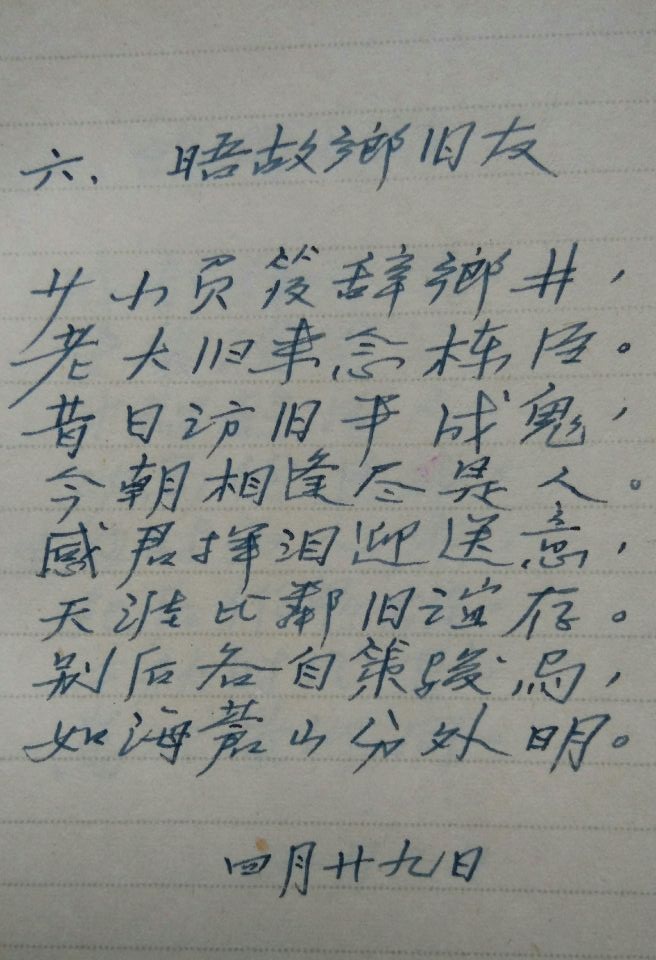 六、晤故鄉旧友
少小负笈辞鄉井，
老大旧事念栋臣。
昔日访旧半成鬼，
今朝相逢尽是人。
感君挥泪迎送意，
天涯比鄰旧谊存。
别后各自策骏马，
如海苍山分外明。
四月廿九日